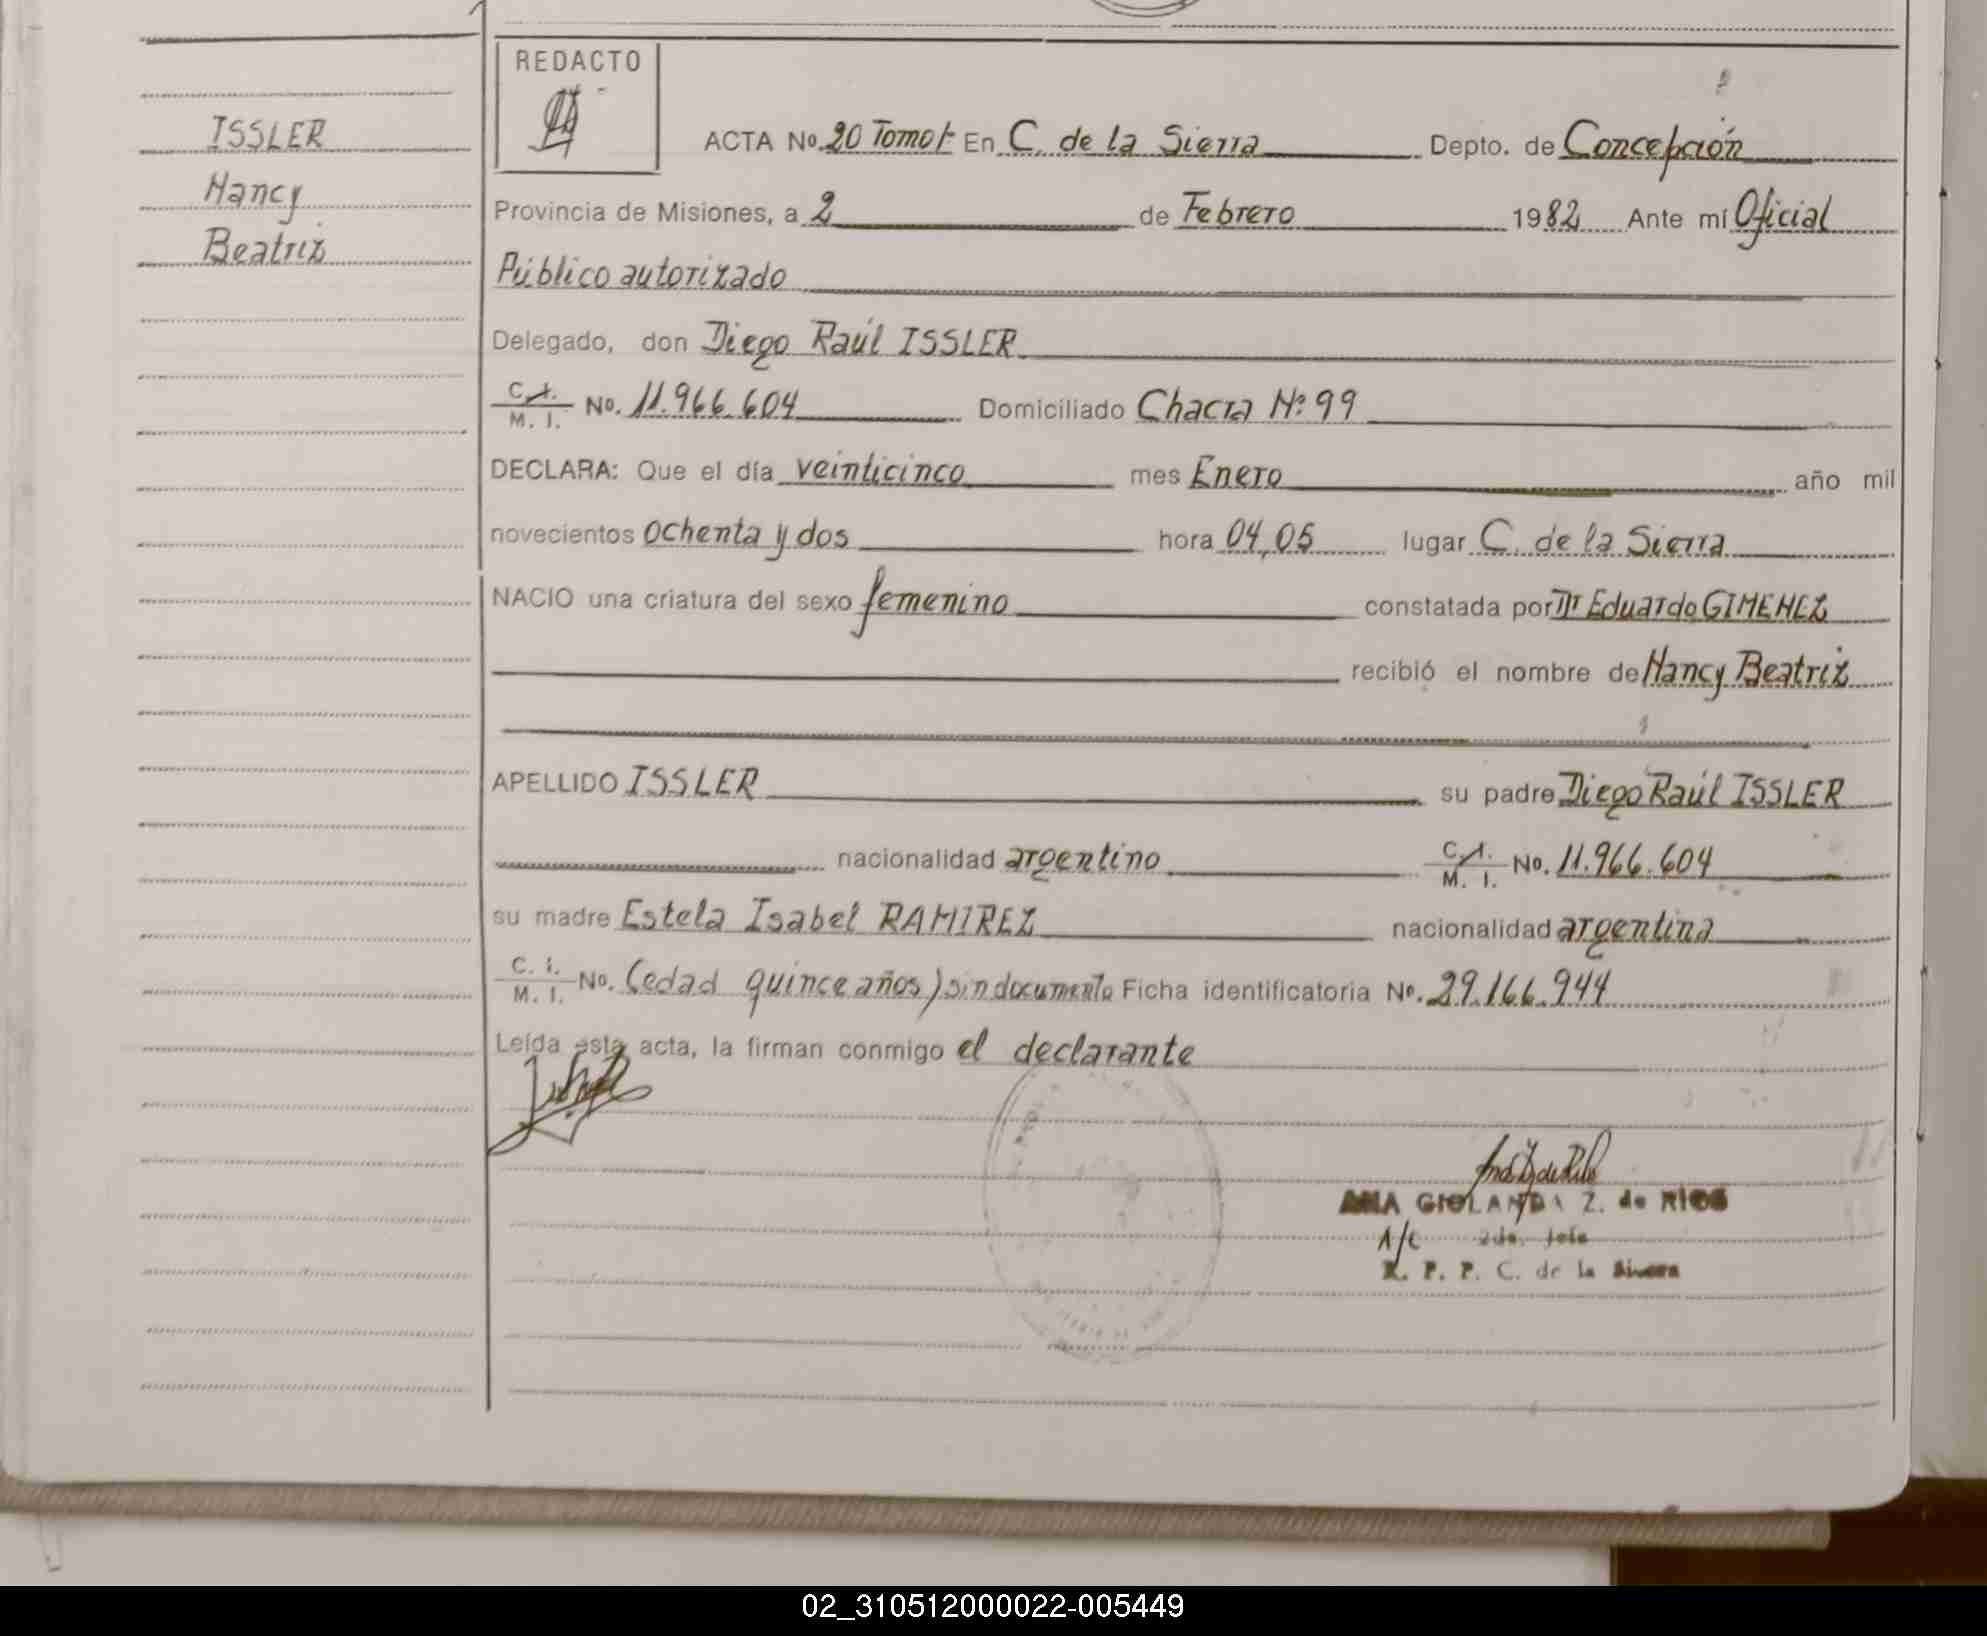 ISSLER
Nancy
Beatriz
REDACTO
ACTA No. 20 Tomo I En C. de la Sierra Depto. de Concepción
Provincia de Misiones, a 2 de Febrero 1982 Ante mí Oficial
Público autorizado
Delegado, don Diego Raúl ISSLER
C. I.
M. I. No. 11.966.604 Domiciliado Chacra Nº 99
DECLARA: Que el día veinticinco mes Enero año mil
novecientos ochenta y dos hora 04,05 lugar C. de la Sierra
NACIO una criatura del sexo femenino constatada por Dr Eduardo GIMENEZ
recibió el nombre de Nancy Beatriz
APELLIDO ISSLER su padre Diego Raúl ISSLER
nacionalidad argentino C. I.
M. I. No. 11.966.604
su madre Estela Isabel RAMIREZ nacionalidad argentina
C. I.
M. I. No. (edad quince años) sin documento Ficha identificatoria No. 29.166.944
Leída esta acta, la firman conmigo el declarante
ANA GIOLANDA Z. de RIOS
A/C 2do. Jefe
R. P. P. C. de la Sierra
02_310512000022-005449